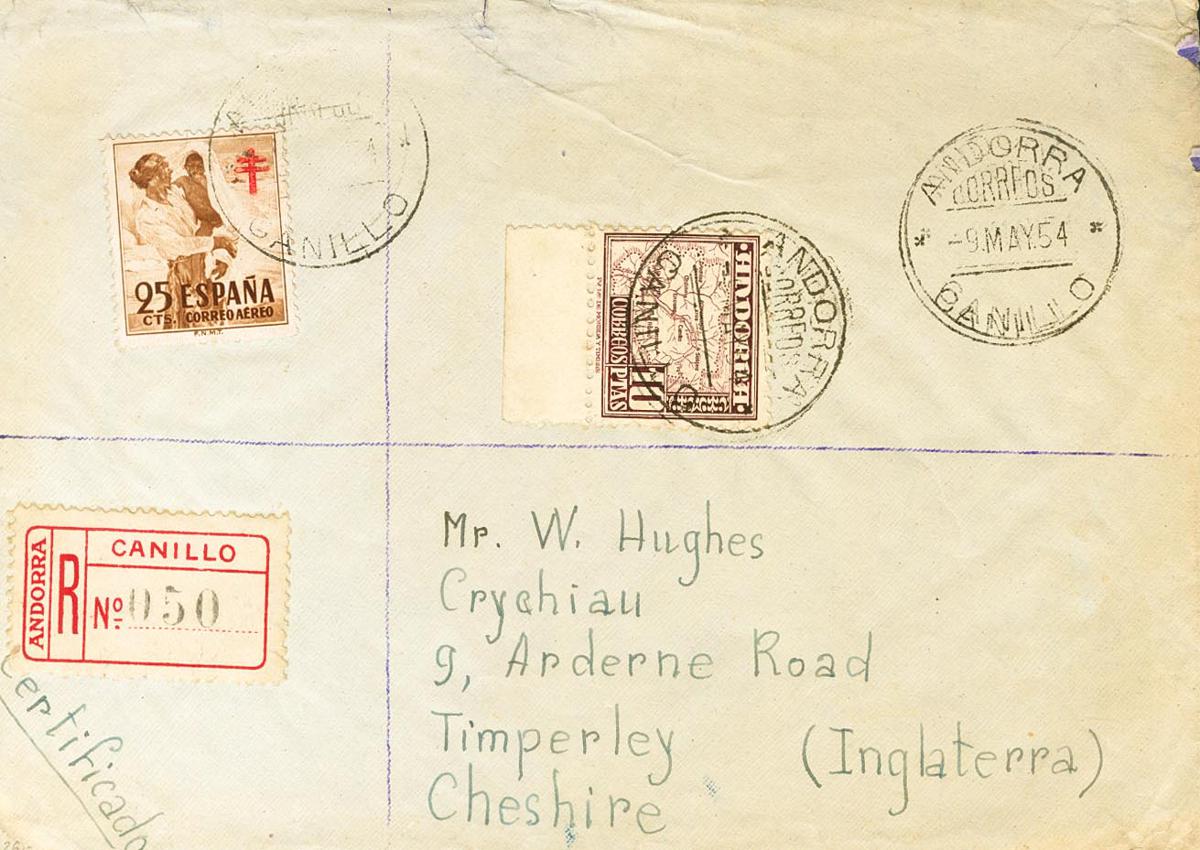 CANILLO
25 ESPAÑA
CTS. CORREO AÉREO
F.N.M.T.
ANDORRA
CORREOS
CANILLO
ANDORRA
CORREOS PTAS
10
ANDORRA
CORREOS
-9.MAY.54
CANILLO
ANDORRA
R
CANILLO
Nº 050
Certificado
Mr. W. Hughes
Crychiau
9, Arderne Road
Timperley (Inglaterra)
Cheshire